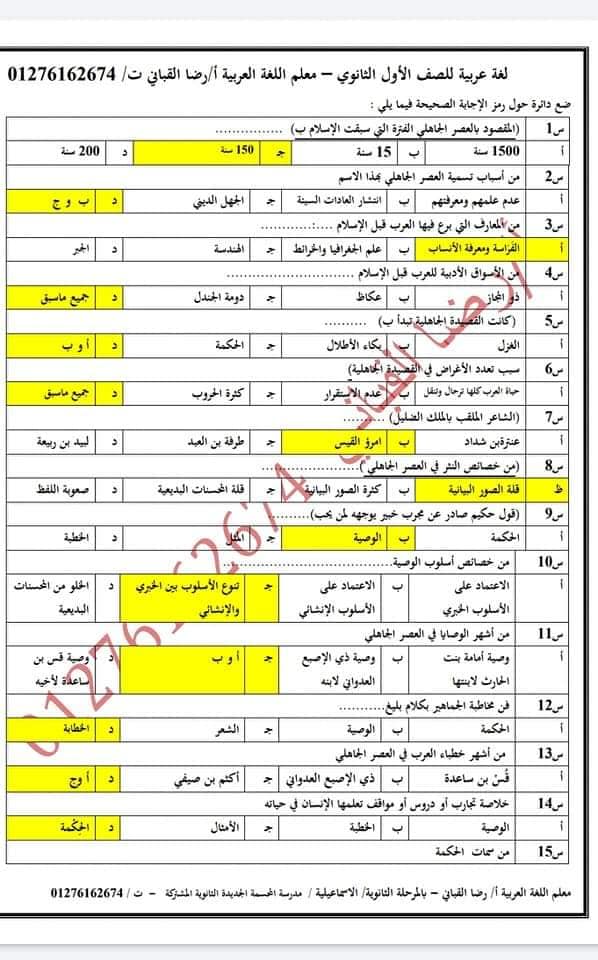 لغة عربية للصف الأول الثانوي – معلم اللغة العربية أ/رضا القباني ت/ 01276162674
ضع دائرة حول رمز الإجابة الصحيحة فيما يلي :
س1 (المقصود بالعصر الجاهلي الفترة التي سبقت الإسلام ب) ................
أ 1500 سنة ب 15 سنة جـ 150 سنة د 200 سنة
س2 من أسباب تسمية العصر الجاهلي بهذا الاسم
أ عدم علمهم ومعرفتهم ب انتشار العادات السيئة جـ الجهل الديني د ب و ج
س3 من المعارف التي برع فيها العرب قبل الإسلام ....:............
أ الفَرَاسة ومعرفة الأنساب ب علم الجغرافيا والخرائط جـ الهندسة د الجبر
س4 من الأسواق الأدبية للعرب قبل الإسلام ............................
أ ذو المجاز ب عكاظ جـ دومة الجندل د جميع ماسبق
س5 (كانت القصيدة الجاهلية تبدأ ب) ..........
أ الغزل ب بكاء الأطلال جـ الحكمة د أ و ب
س6 سبب تعدد الأغراض في القصيدة الجاهلية)
أ حياة العرب كلها ترحال وتنقل ب عدم الاستقرار جـ كثرة الحروب د جميع ماسبق
س7 (الشاعر الملقب بالملك الضليل) ..........
أ عنترة بن شداد ب امرؤ القيس جـ طرفة بن العبد د لبيد بن ربيعة
س8 (من خصائص النثر في العصر الجاهلي )......................
ظ قلة الصور البيانية ب كثرة الصور البيانية جـ قلة المحسنات البديعية د صعوبة اللفظ
س9 (قول حكيم صادر عن مجرب خبير يوجهه لمن يحب)..........
أ الحكمة ب الوصية جـ المثل د الخطبة
س10 من خصائص أسلوب الوصية......................................
أ الاعتماد على الأسلوب الخبري ب الاعتماد على الأسلوب الإنشائي جـ تنوع الأسلوب بين الخبري والإنشائي د الخلو من المحسنات البديعية
س11 من أشهر الوصايا في العصر الجاهلي
أ وصية أمامة بنت الحارث لابنتها ب وصية ذي الإصبع العدواني لابنه جـ أ و ب د وصية قس بن ساعدة لأخيه
س12 فن مخاطبة الجماهير بكلام بليغ..........
أ الحكمة ب الوصية جـ الشعر د الخطابة
س13 من أشهر خطباء العرب في العصر الجاهلي
أ قُسّ بن ساعدة ب ذي الإصبع العدواني جـ أكثم بن صيفي د أ وج
س14 خلاصة تجارب أو دروس أو مواقف تعلمها الإنسان في حياته
أ الوصية ب الخطبة جـ الأمثال د الحِكمة
س15 من سمات الحكمة
معلم اللغة العربية أ/ رضا القباني – بالمرحلة الثانوية/ الاسماعيلية / مدرسة المحسمة الجديدة الثانوية المشتركة – ت / 01276162674
أ/رضا القباني 01276162674